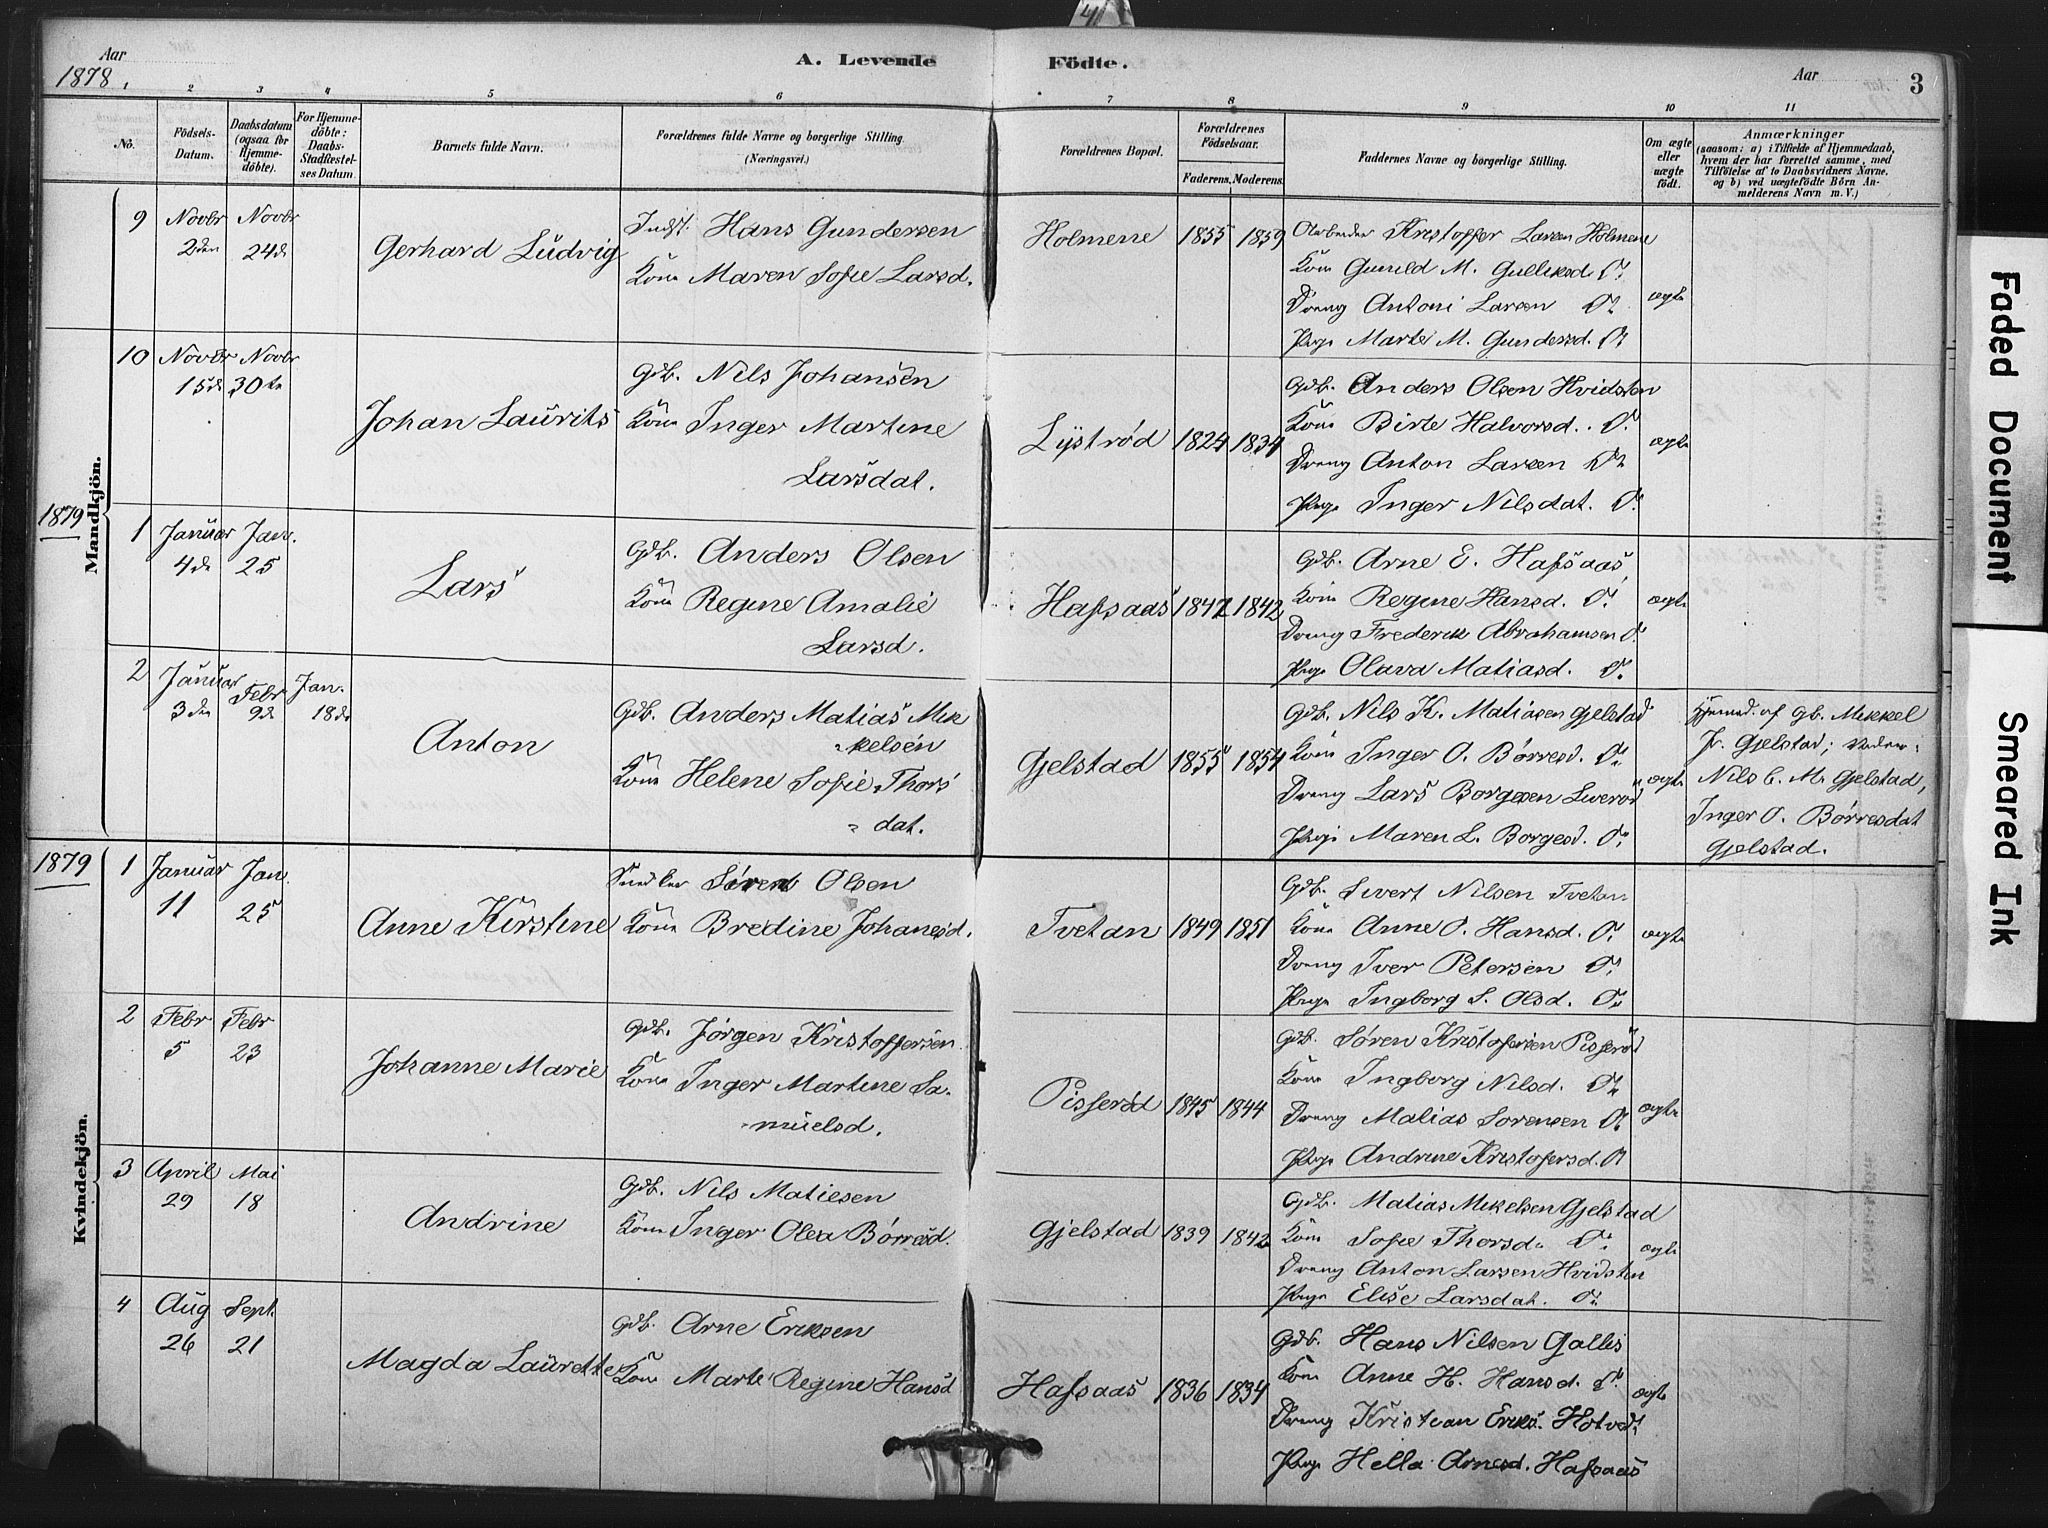 Aar
1878
A. Levende Födte.
Aar
3
1 2 3 4 5 6 7 8 9 10 11
No.
Födsels-Datum.
Daabsdatum (ogsaa for Hjemmedöbte).
For Hjemmedöbte: Daabs-Stadfæstelses Datum.
Barnets fulde Navn.
Forældrenes fulde Navne og borgerlige Stilling. (Næringsvei.)
Forældrenes Bopæl.
Forældrenes Födselsaar.
Faderens. Moderens.
Faddernes Navne og borgerlige Stilling.
Om ægte eller uægte födt.
Anmærkninger
(saasom: a) i Tilfælde af Hjemmedaab, hvem der har forrettet samme, med Tilföielse af to Daabsvidners Navne, og b) ved uægtefödte Börn Anmelderens Navn m. V.)
Mandkjön.
9 Novbr 2den Novbr 24de
Gerhard Ludvig
Indst. Hans Gundersen
Kone Maren Sofie Larsd.
Holmene 1855 1859
Arbeider Kristoffer Larsen Holmene
Kone Gunild M. Gulliksd. Do
Dreng Antoni Larsen Do
Pige Marte M. Gundersd. Do
ægte
10 Novbr 15de Novbr 30te
Johan Laurits
Gdb. Nils Johansen
Kone Inger Martine
Larsdat.
Lystrød 1824 1834
Gdb. Anders Olsen Hvidsten
Kone Birte Halvorsd. Do
Dreng Anton Larsen Do
Pige Inger Nilsdat. Do
ægte
1879
1 Januar 4de Jan. 25
Lars
Gdb. Anders Olsen
Kone Regine Amalie
Larsd.
Hafsaas 1842 1842
Gdb. Arne E. Hafsaas
Kone Regine Hansd. Do
Dreng Frederik Abrahamsen Do
Pige Olava Matiasd. Do
ægte
2 Januar 3den Febr 9de Jan. 18de
Anton
Gdb. Anders Matias Mik
kelsen
Kone Helene Sofie Thors
dat.
Gjelstad 1855 1854
Gdb. Nils K. Matiasen Gjelstad
Kone Inger O. Børresd. Do
Dreng Lars Borgesen Sverød
Pige Maren L. Borgesd. Do
ægte
Hjemmed. af Gb. Mikkel
Jr. Gjelstad; Vidner:
Nils C. M. Gjelstad,
Inger O. Børresdat
Gjelstad.
Kvindekjön.
1879
1 Januar 11 Jan. 25
Anne Kirstine
Snedker Søren Olsen
Kone Bredine Johanesd.
Tvetan 1849 1851
Gdb. Sivert Nilsen Tvetan
Kone Anne O. Hansd. Do
Dreng Iver Petersen Do
Pige Ingborg S. Olsd. Do
ægte
2 Febr 5 Febr 23
Johanne Marie
Gdb. Jørgen Kristoffersen
Kone Inger Martine Sa-
muelsd.
Pisserød 1845 1844
Gdb. Søren Kristofersen Pisserød
Kone Ingborg Nilsd. Do
Dreng Matias Sorensen Do
Pige Andrine Kristofersd. Do
ægte
3 April 29 Mai 18
Andrine
Gdb. Nils Matiesen
Kone Inger Olea Børresd.
Gjelstad 1839 1842
Gdb. Matias Mikelsen Gjelstad
Kone Sofie Thorsd. Do
Dreng Anton Larsen Hvidsten
Pige Elise Larsdat. Do
ægte
4 Aug 26 Sept. 21
Magda Laurette
Gdb. Arne Eriksen
Kone Marte Regine Hansd
Hafsaas 1836 1834
Gdb. Hans Nilsen Gallis
Kone Anne H. Hansd. Do
Dreng Kristian Eriks. Hotvedt
Pige Hella Arnesd. Hafsaas
ægte
Faded Document
Smeared Ink